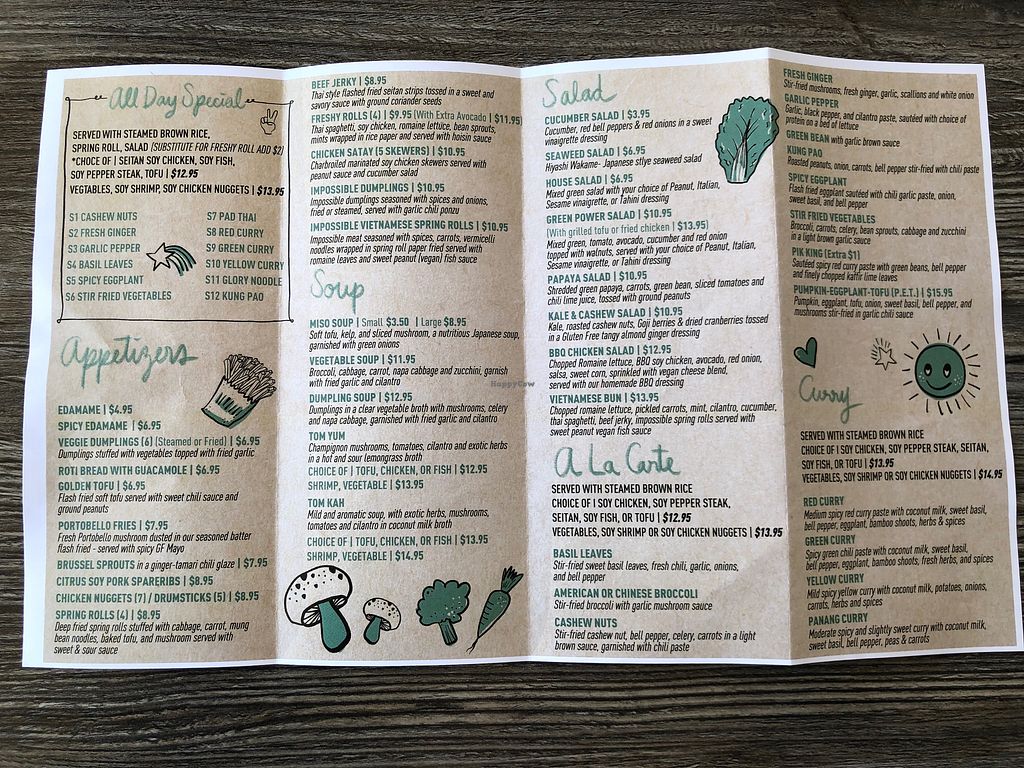 All Day Special
SERVED WITH STEAMED BROWN RICE,
SPRING ROLL, SALAD (SUBSTITUTE FOR FRESHY ROLL ADD $2)
*CHOICE OF | SEITAN SOY CHICKEN, SOY FISH,
SOY PEPPER STEAK, TOFU | $12.95
VEGTABLES, SOY SHRIMP, SOY CHICKEN NUGGETS | $13.95
S1 CASHEW NUTS
S2 FRESH GINGER
S3 GARLIC PEPPER
S4 BASIL LEAVES
S5 SPICY EGGPLANT
S6 STIR FRIED VEGETABLES
S7 PAD THAI
S8 RED CURRY
S9 GREEN CURRY
S10 YELLOW CURRY
S11 GLORY NOODLE
S12 KUNG PAO
Appetizers
EDAMAME | $4.95
SPICY EDAMAME | $6.95
VEGGIE DUMPLINGS (6) (Steamed or Fried) | $6.95
Dumplings stuffed with vegetables topped with fried garlic
ROTI BREAD WITH GUACAMOLE | $6.95
GOLDEN TOFU | $6.95
Flash fried soft tofu served with sweet chili sauce and
ground peanuts
PORTOBELLO FRIES | $7.95
Fresh Portobello mushroom dusted in our seasoned batter
flash fried - served with spicy GF Mayo
BRUSSEL SPROUTS in a ginger-tamari chili glaze | $7.95
CITRUS SOY PORK SPARERIBS | $8.95
CHICKEN NUGGETS (7) / DRUMSTICKS (5) | $8.95
SPRING ROLLS (4) | $8.95
Deep fried spring rolls stuffed with cabbage, carrot, mung
bean noodles, baked tofu, and mushroom served with
sweet & sour sauce
BEEF JERKY | $8.95
Thai style flashed fried seitan strips tossed in a sweet and
savory sauce with ground coriander seeds
FRESHY ROLLS (4) | $9.95 (With Extra Avocado | $11.95)
Thai spaghetti, soy chicken, romaine lettuce, bean sprouts,
mints wrapped in rice paper and served with hoisin sauce
CHICKEN SATAY (5 SKEWERS) | $10.95
Charbroiled marinated soy chicken skewers served with
peanut sauce and cucumber salad
IMPOSSIBLE DUMPLINGS | $10.95
Impossible dumplings seasoned with spices and onions,
fried or steamed, served with garlic chili ponzu
IMPOSSIBLE VIETNAMESE SPRING ROLLS | $10.95
Impossible meat seasoned with spices, carrots, vermicelli
noodles wrapped in spring roll paper fried served with
romaine leaves and sweet peanut (vegan) fish sauce
Soup
MISO SOUP | Small $3.50 | Large $8.95
Soft tofu, kelp, and sliced mushroom, a nutritious Japanese soup,
garnished with green onions
VEGETABLE SOUP | $11.95
Broccoli, cabbage, carrot, napa cabbage and zucchini, garnish
with fried garlic and cilantro
DUMPLING SOUP | $12.95
Dumplings in a clear vegetable broth with mushrooms, celery
and napa cabbage, garnished with fried garlic and cilantro
TOM YUM
Champignon mushrooms, tomatoes, cilantro and exotic herbs
in a hot and sour lemongrass broth
CHOICE OF | TOFU, CHICKEN, OR FISH | $12.95
SHRIMP, VEGETABLE | $13.95
TOM KAH
Mild and aromatic soup, with exotic herbs, mushrooms,
tomatoes and cilantro in coconut milk broth
CHOICE OF | TOFU, CHICKEN, OR FISH | $13.95
SHRIMP, VEGETABLE | $14.95
HappyCow
Salad
CUCUMBER SALAD | $3.95
Cucumber, red bell peppers & red onions in a sweet
vinaigrette dressing
SEAWEED SALAD | $6.95
Hiyashi Wakame- Japanese stlye seaweed salad
HOUSE SALAD | $6.95
Mixed green salad with your choice of Peanut, Italian,
Sesame vinaigrette, or Tahini dressing
GREEN POWER SALAD | $10.95
(With grilled tofu or fried chicken | $13.95)
Mixed green, tomato, avocado, cucumber and red onion
topped with walnuts, served with your choice of Peanut, Italian,
Sesame vinaigrette, or Tahini dressing
PAPAYA SALAD | $10.95
Shredded green papaya, carrots, green bean, sliced tomatoes and
chili lime juice, tossed with ground peanuts
KALE & CASHEW SALAD | $10.95
Kale, roasted cashew nuts, Goji berries & dried cranberries tossed
in a Gluten Free tangy almond ginger dressing
BBQ CHICKEN SALAD | $12.95
Chopped Romaine lettuce, BBQ soy chicken, avocado, red onion,
salsa, sweet corn, sprinkled with vegan cheese blend,
served with our homemade BBQ dressing
VIETNAMESE BUN | $13.95
Chopped romaine lettuce, pickled carrots, mint, cilantro, cucumber,
thai spaghetti, beef jerky, impossible spring rolls served with
sweet peanut vegan fish sauce
A La Carte
SERVED WITH STEAMED BROWN RICE
CHOICE OF | SOY CHICKEN, SOY PEPPER STEAK,
SEITAN, SOY FISH, OR TOFU | $12.95
VEGETABLES, SOY SHRIMP OR SOY CHICKEN NUGGETS | $13.95
BASIL LEAVES
Stir-fried sweet basil leaves, fresh chili, garlic, onions,
and bell pepper
AMERICAN OR CHINESE BROCCOLI
Stir-fried broccoli with garlic mushroom sauce
CASHEW NUTS
Stir-fried cashew nut, bell pepper, celery, carrots in a light
brown sauce, garnished with chili paste
FRESH GINGER
Stir-fried mushrooms, fresh ginger, garlic, scallions and white onion
GARLIC PEPPER
Garlic, black pepper, and cilantro paste, sautéed with choice of
protein on a bed of lettuce
GREEN BEAN with garlic brown sauce
KUNG PAO
Roasted peanuts, onion, carrots, bell pepper stir-fried with chili paste
SPICY EGGPLANT
Flash fried eggplant sautéed with chili garlic paste, onion,
sweet basil, and bell pepper
STIR FRIED VEGETABLES
Broccoli, carrots, celery, bean sprouts, cabbage and zucchini
in a light brown garlic sauce
PIK KING (Extra $1)
Sautéed spicy red curry paste with green beans, bell pepper
and finely chopped kaffir lime leaves
PUMPKIN-EGGPLANT-TOFU (P.E.T.) | $15.95
Pumpkin, eggplant, tofu, onion, sweet basil, bell pepper, and
mushrooms stir-fried in garlic chili sauce
Curry
SERVED WITH STEAMED BROWN RICE
CHOICE OF | SOY CHICKEN, SOY PEPPER STEAK, SEITAN,
SOY FISH, OR TOFU | $13.95
VEGETABLES, SOY SHRIMP OR SOY CHICKEN NUGGETS | $14.95
RED CURRY
Medium spicy red curry paste with coconut milk, sweet basil,
bell pepper, eggplant, bamboo shoots, herbs & spices
GREEN CURRY
Spicy green chili paste with coconut milk, sweet basil,
bell pepper, eggplant, bamboo shoots, fresh herbs, and spices
YELLOW CURRY
Mild spicy yellow curry with coconut milk, potatoes, onions,
carrots, herbs and spices
PANANG CURRY
Moderate spicy and slightly sweet curry with coconut milk,
sweet basil, bell pepper, peas & carrots